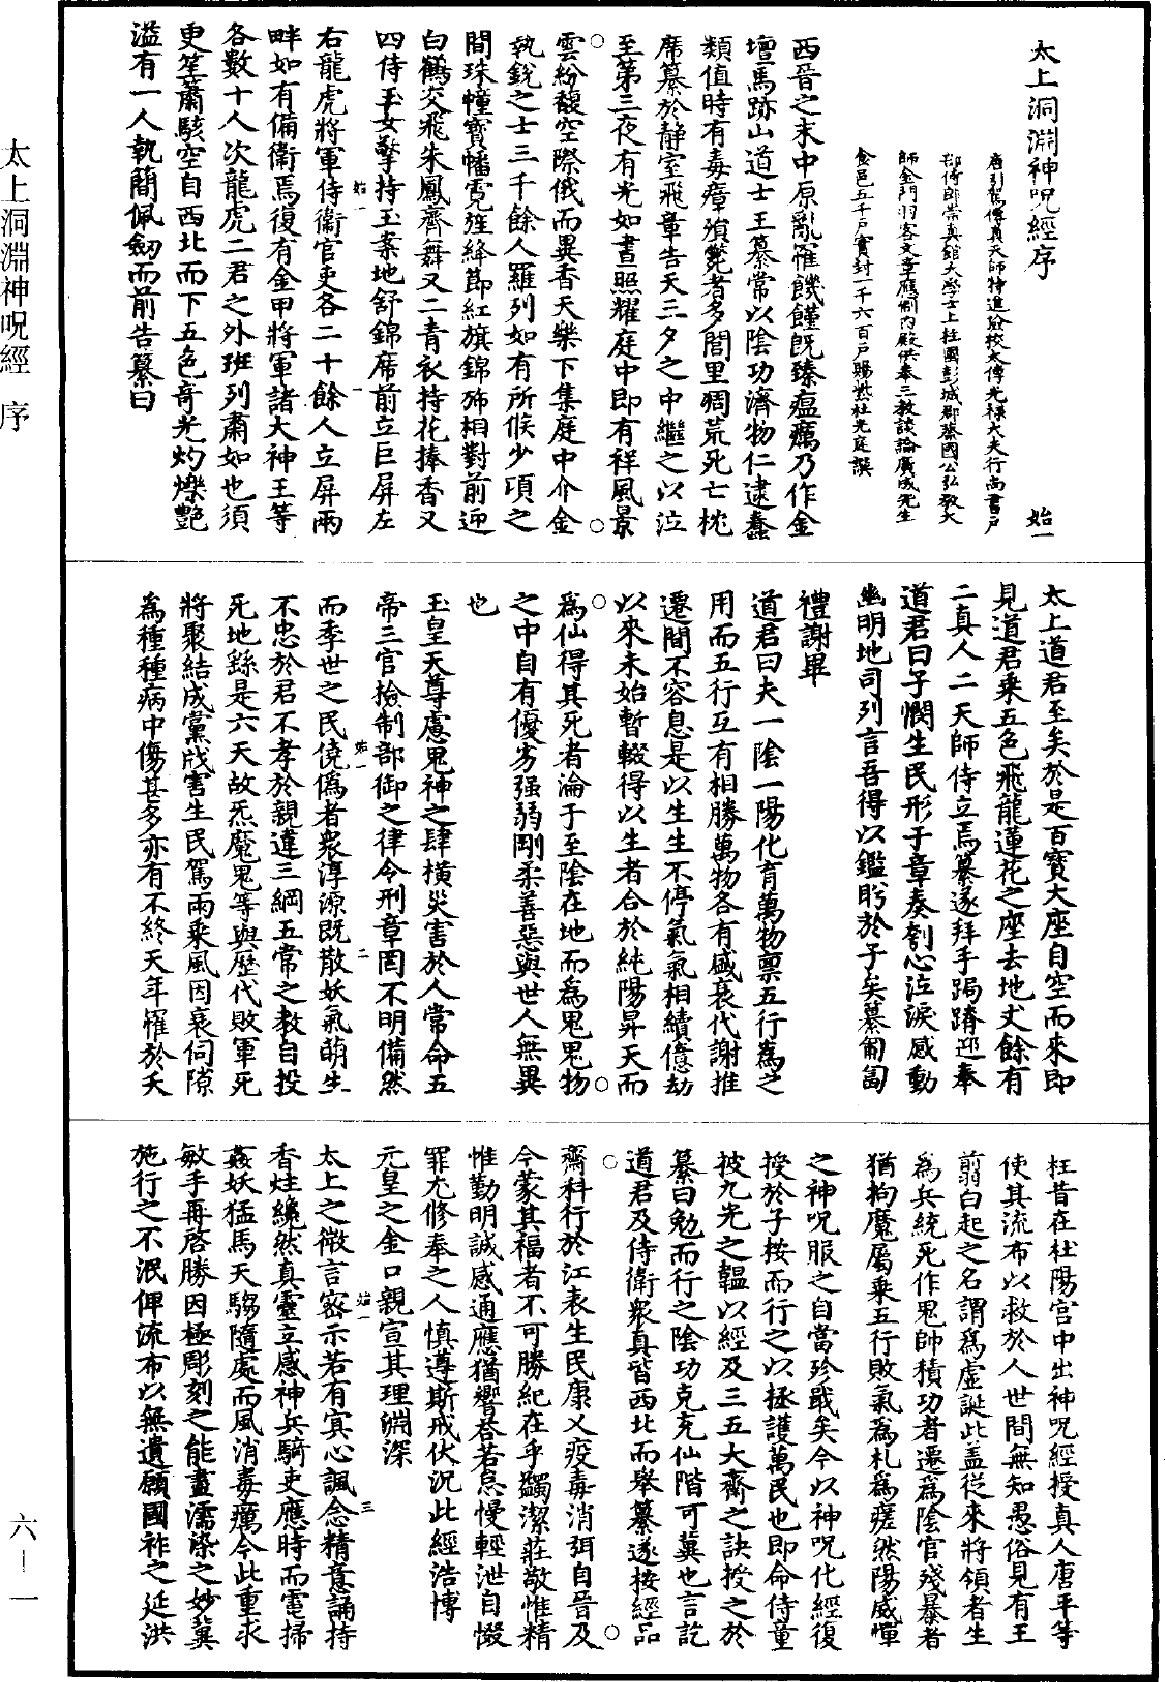 太上洞淵神呪經序　始一
唐引駕傳真天師特進檢校太傅光祿大夫行尚書戶
部侍郎崇真館大學士上柱國彭城郡蔡國公弘教大
師金門羽客文章應制內殿供奉三教談論廣成先生
食邑五千戶實封一千六百戶賜紫杜光庭譔
西晉之末中原亂罹饑饉既臻瘟癘乃作金
壇馬跡山道士王纂常以陰功濟物仁逮蠢
類值時有毒瘴殞斃者多閭里凋荒死亡枕
席纂於靜室飛章告天三夕之中繼之以泣
至第三夜有光如晝照耀庭中即有祥風景
雲紛馥空際俄而異香天樂下集庭中介金
執銳之士三千餘人羅列如有所候少頃之
間珠幢寶幡霓旌絳節紅旗錦旆相對前迎
白鶴交飛朱鳳齊舞又二青衣持花捧香又
四侍玉女擎持玉案地舒錦席前立巨屏左
右龍虎將軍侍衛官吏各二十餘人立屏兩
畔如有備衛焉復有金甲將軍諸大神王等
各數十人次龍虎二君之外班列肅如也須
更笙簫駭空自西北而下五色奇光灼爍艷
溢有一人執簡佩劒而前告纂曰
太上道君至矣於是百寶大座自空而來即
見道君乘五色飛龍蓮花之座去地丈餘有
二真人二天師侍立焉纂遂拜手跼蹐迎奉
道君曰子憫生民形于章奏刳心泣淚感動
幽明地司列言吾得以鑑盻於子矣纂匍匐
禮謝畢
道君曰夫一陰一陽化育萬物禀五行為之
用而五行互有相勝萬物各有盛衰代謝推
遷間不容息是以生生不停氣氣相續億劫
以來未始暫輟得以生者合於純陽昇天而
為仙得其死者淪于至陰在地而為鬼鬼物
之中自有優劣强弱剛柔善惡與世人無異
也
玉皇天尊慮鬼神之肆横災害於人常命五
帝三官撿制部御之律令刑章罔不明備然
而季世之民僥偽者衆淳源既散妖氣萌生
不忠於君不孝於親違三綱五常之教自投
死地繇是六天故炁魔鬼等與歷代敗軍死
將聚結成黨戕害生民駕雨乘風因衰伺隙
為種種病中傷甚多亦有不終天年罹於夭
枉昔在杜陽宫中出神呪經授真人唐平等
使其流布以救於人世間無知愚俗見有王
翦白起之名謂為虛誕此盖從來將領者生
為兵統死作鬼師積功者遷為陰官殘暴者
猶拘魔屬乘五行敗氣為札為瘥然陽威憚
之神呪服之自當殄戢矣今以神呪化經復
授於子按而行之以拯護萬民也即命侍童
披九光之韞以經及三五大齋之訣授之於
纂曰勉而行之陰功克充仙階可冀也言訖
道君及侍衛衆真皆西北而舉纂遂按經品
齋科行於江表生民康乂疫毒消弭自晉及
今蒙其福者不可勝紀在乎蠲潔莊敬惟精
惟勤明誠感通應猶響荅若怠慢輕泄自掇
罪尤修奉之人慎遵斯戒伏況此經浩博
元皇之金口親宣其理淵深
太上之微言密示若有寘心諷念精意誦持
香炷纔然真靈立感神兵騎吏應時而電掃
姦妖猛馬天騶隨處而風消毒癘今此重求
敏手再啓勝因極彫刻之能盡濡染之妙冀
施行之不泯俾流布以無遺願國祚之延洪
太上洞淵神呪經　序
六－一